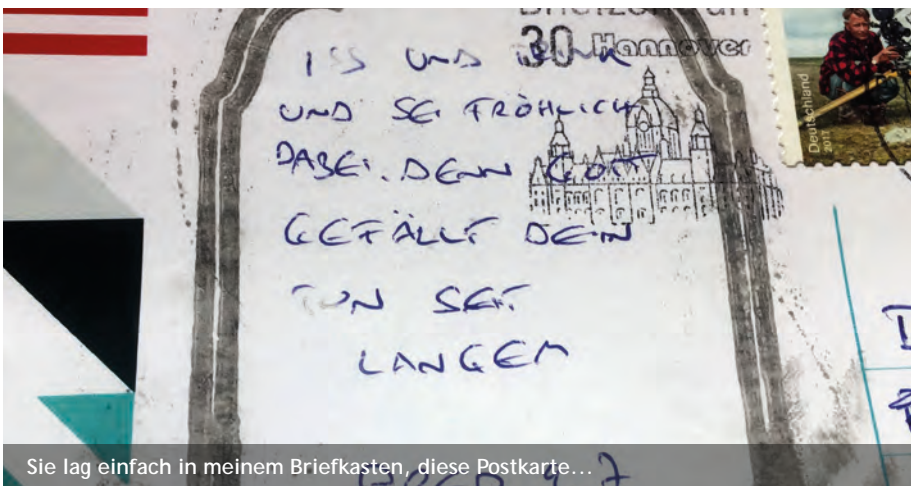 Briefzentrum
30 Hannover
Deutschland
2011
ISS UND TRINK
UND SEI FRÖHLICH
DABEI. DENN GOTT
GEFÄLLT DEIN
TUN SEIT
LANGEM
9,7
Sie lag einfach in meinem Briefkasten, diese Postkarte...